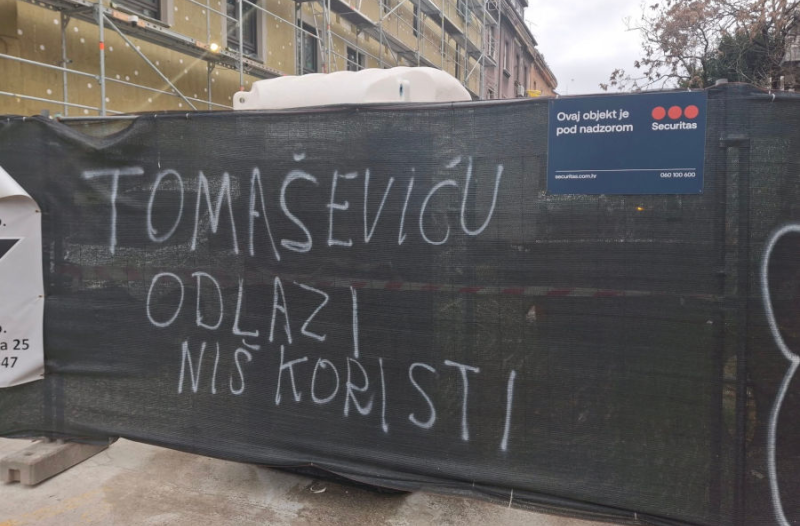 Ovaj objekt je
pod nadzorom
Securitas
securitas.com.hr
060 100 600
TOMAŠEVIĆU
ODLAZI
NIŠ KORISTI
a 25
47